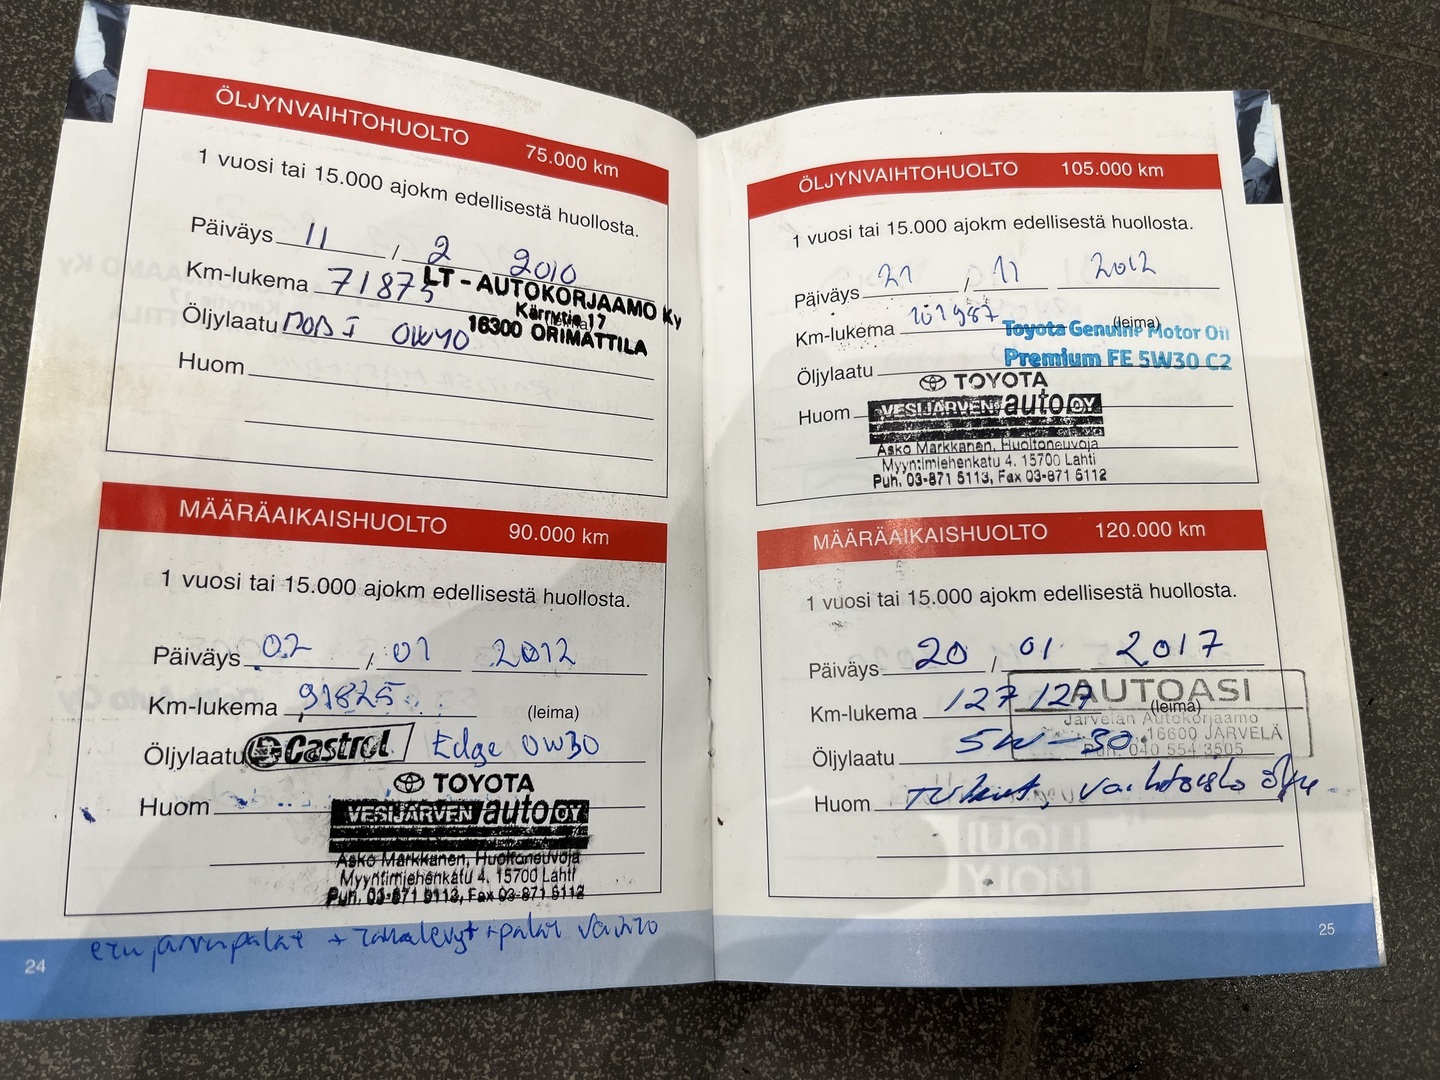 ÖLJYNVAIHTOHUOLTO 75.000 km
1 vuosi tai 15.000 ajokm edellisestä huollosta.
Päiväys 11 / 2 2010
Km-lukema 71875
LT - AUTOKORJAAMO Ky
Kärrytie 17
16300 ORIMATTILA
(leima)
Öljylaatu MOB I 0W40
Huom
MÄÄRÄAIKAISHUOLTO 90.000 km
1 vuosi tai 15.000 ajokm edellisestä huollosta.
Päiväys 02 / 01 2012
Km-lukema 91825 (leima)
Öljylaatu Castrol Edge 0W30
Huom
TOYOTA
VESIJÄRVEN auto OY
Asko Markkanen, Huoltoneuvoja
Myyntimiehenkatu 4, 15700 Lahti
Puh. 03-871 5113, Fax 03-871 5112
etu jarrupalat + takalevyt + palat vaihto
24
ÖLJYNVAIHTOHUOLTO 105.000 km
1 vuosi tai 15.000 ajokm edellisestä huollosta.
Päiväys 21 / 11 2012
Km-lukema 101987 (leima)
Toyota Genuine Motor Oil
Premium FE 5W30 C2
Öljylaatu
Huom
TOYOTA
VESIJÄRVEN auto OY
Asko Markkanen, Huoltoneuvoja
Myyntimiehenkatu 4, 15700 Lahti
Puh. 03-871 5113, Fax 03-871 5112
MÄÄRÄAIKAISHUOLTO 120.000 km
1 vuosi tai 15.000 ajokm edellisestä huollosta.
Päiväys 20 / 01 2017
Km-lukema 127 127 (leima)
AUTOASI
Järvelän Autokorjaamo
16600 JÄRVELÄ
Puh. 040 554 3505
Öljylaatu 5W-30
Huom
25